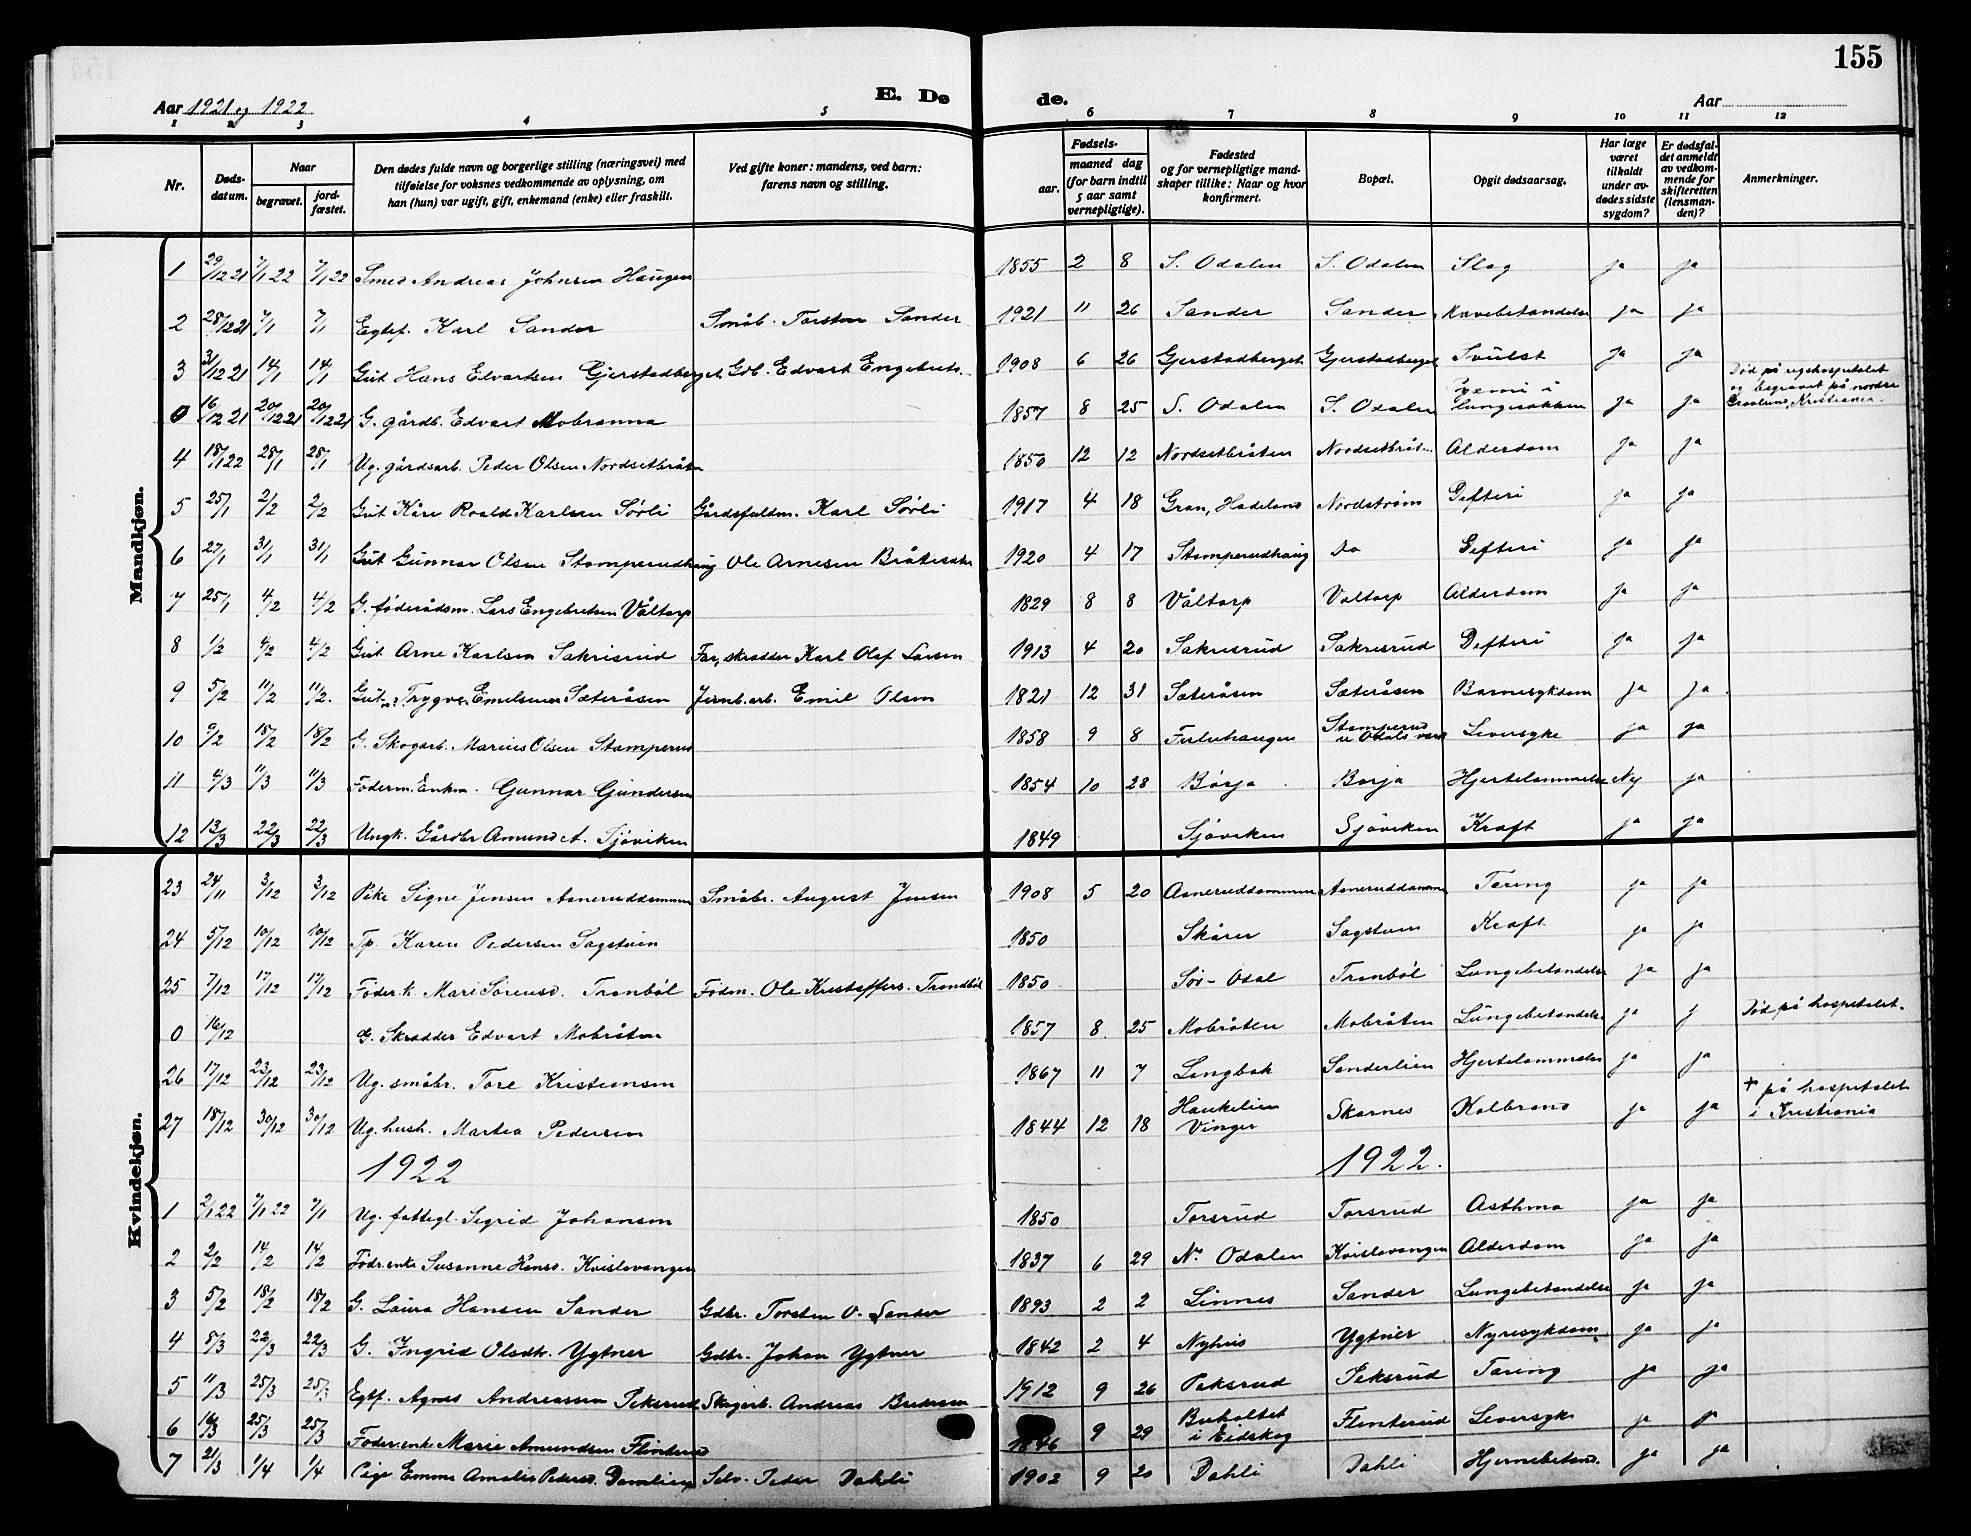 155
Aar 1921 og 1922 E. Dø de. Aar
1 2 3 4 5 6 7 8 9 10 11 12
Nr. Døds-datum. Naar begravet. jord-fæstet. Den dødes fulde navn og borgerlige stilling (næringsvei) med tilføielse for voksnes vedkommende av oplysning, om han (hun) var ugift, gift, enkemand (enke) eller fraskilt. Ved gifte koner: mandens, ved barn: farens navn og stilling. Fødsels- aar. maaned dag (for barn indtil 5 aar samt vernepligtige). Fødested og for vernepligtige mand-skaper tillike: Naar og hvor konfirmert. Bopæl. Opgit dødsaarsag. Har læge været tilkaldt under av-dødes sidste sygdom? Er dødsfal-det anmeldt av vedkom-mende for skifteretten (lensman-den)? Anmerkninger.
Mandkjøn.
1 29/12 21 7/1 22 7/1 22 Smed Andreas Johnsen Haugen 1855 2 8 S. Odalen S. Odalen Slag ja ja
2 28/12 21 7/1 7/1 Egtef. Karl Sander Småb. Torsten Sander 1921 11 26 Sander Sander ja ja
3 31/12 21 14/1 14/1 Gut Hans Edvartsen Gjerstadberget Gdb. Edvart Engebrets. 1908 6 26 Gjerstadberget Gjerstadberget Svulst ja ja
0 16/12 21 20/12 21 20/12 21 G. gårdb. Edvart Mobranna 1857 8 25 S. Odalen S. Odalen i lungesækken ja ja Død på rigshospitalet og begravet på nordre Gravlund, Kristiania.
4 18/1 22 28/1 28/1 Ug. gårdsarb. Peder Olsen Nordsetbråten 1850 12 12 Nordsetbråten Nordsetbråten Alderdom ja ja
5 25/1 2/2 2/2 Gut Kåre Roald Karlsen Sørli Gårdsfuldm. Karl Sørli 1917 4 18 Gran, Hadeland Nordstrøm Difteri ja ja
6 27/1 31/1 31/1 Gut Gunnar Olsen Stomperudhaug Ole Arnesen Bråtesæter 1920 4 17 Stomperudhaug Do Difteri ja ja
7 25/1 4/2 4/2 G. føderådsm. Lars Engebretsen Våltorp 1829 8 8 Våltorp Valtorp Alderdom ja ja
8 1/2 4/2 4/2 Gut Arne Karlsen Sakrisrud Far, skrædder Karl Olaf Larsen 1913 4 20 Sakrisrud Sakrisrud Difteri ja ja
9 5/2 11/2 11/2. Gut Trygve Emilsen Sæteråsen Jernb.arb. Emil Olsen 1821 12 31 Sæteråsen Sæteråsen Barnesykdom ja ja
10 9/2 18/2 18/2 G. Skogarb. Marius Olsen Stomperud 1858 9 8 Fuluhaugen Stomperud Leversyke ja ja
11 4/3 11/3 11/3 Føderm. Enkm. Gunnar Gundersen 1854 10 28 Børja Borja Hjertelammelse Nej ja
12 13/3 22/3 22/3 Ungk. Gårdbr Amund A. Sjøviken 1849 Sjøviken Sjøviken Kræft ja ja
Kvindekjøn.
23 24/11 3/12 3/12 Pike Signe Jensen Asneruddammen Småbr. August Jensen 1908 5 20 Asneruddammen Asneruddammen Tæring ja ja
24 5/12 10/12 10/12 Tp. Karen Pedersen Sagstuen 1850 Skårer Sagstuen Kræft ja ja
25 7/12 17/12 17/12 Føder.k. Mari Sørensd. Tronbøl Fødm. Ole Kristoffers. Trondbøl 1850 Sør-Odal Tronbøl Lungebetændelse ja ja
0 16/12 G. Skrædder Edvart Mobråten 1857 8 25 Mobråten Mobråten Lungebetændelse ja j Død på hospitalet.
26 17/12 23/12 23/12 Ug. småbr. Tore Kristiansen 1867 11 7 Langbak Sanderlien Hjertelammelse ja ja
27 18/12 30/12 30/12 Ug. hush. Martea Pedersen 1844 12 18 Haukelien Vinger Skarnes Kolbrand ja ja † på hospitalet i Kristiania
1922 1922.
1 2/1 22 7/1 22 7/1 Ug. fattigl. Sigrid Johansen 1850 Torsrud Torsrud Asthma ja ja
2 2/2 14/2 14/2 Føder.enke Susanne Hansd. Kvislevangen 1837 6 29 N. Odalen Kvislevangen Alderdom ja ja
3 5/2 18/2 18/2 G. Laura Hansen Sander Gdbr. Torsten O. Sander 1893 2 2 Linnes Sander Lungebetændelse ja ja
4 8/3 22/3 22/3 G. Ingrid Olsdtr. Ygtner Gdbr. Johan Ygtner 1842 2 4 Nyhus Ygtner Nyresykdom ja ja
5 11/3 25/3 25/3 Egtf. Agnes Andreassen Peksrud Skogarb. Andreas 1912 9 26 Peksrud Peksrud Tæring ja ja
6 16/3 25/3 25/3 Føder.enke Marie Amundsen Flinterud 1846 9 29 Buholtet i Eidskog Flinterud Leversyke ja
7 21/3 1/4 1/4 Pige Emma Amalie Peders. Selv. Peder Dahli 1902 9 20 Dahli Dahli Hjernebetænd. ja ja